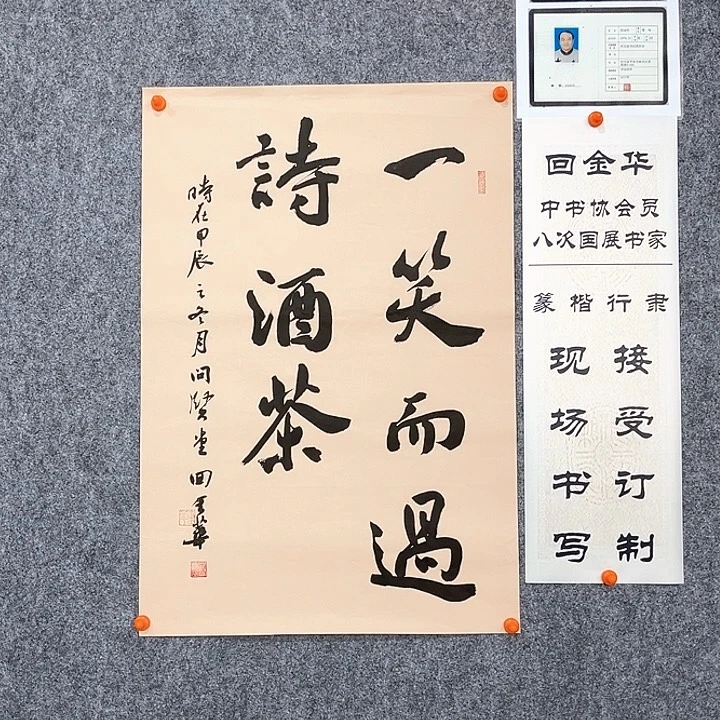 一笑而過
詩酒茶
時在甲辰之冬月問賢堂回金華
回金华
中书协会员
八次国展书家
篆楷行隶
现场书写
接受订制